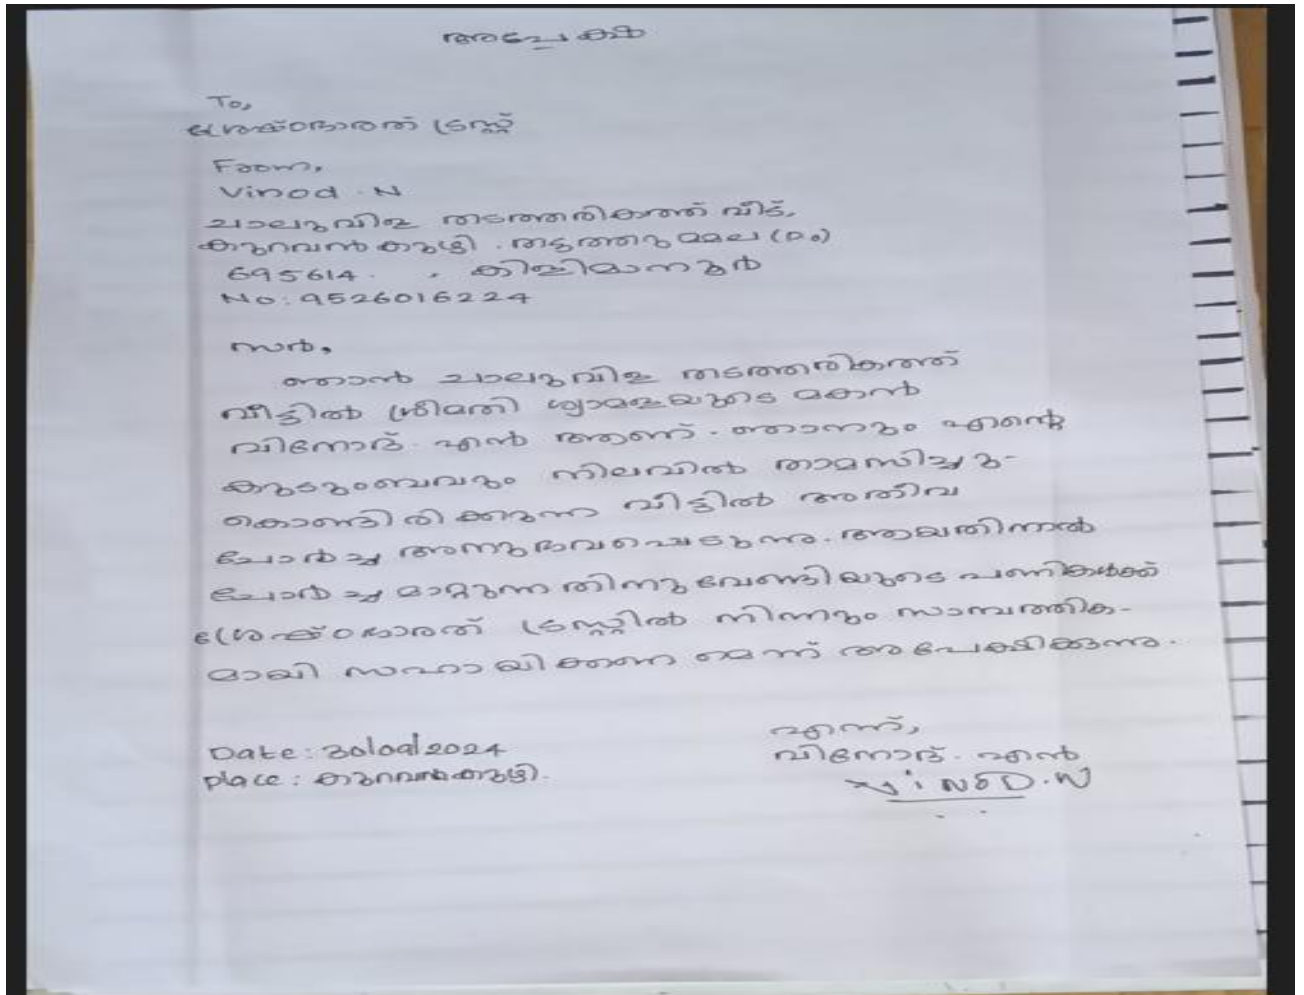 അപേക്ഷ
To,
ശ്രേഷ്ഠഭാരത് ട്രസ്റ്റ്
From,
Vinod . N
ചാലുവിള തടത്തരികത്ത് വീട്,
കുറവൻകുഴി . തട്ടത്തുമല (P.O)
695614 . . കിളിമാനൂർ
No: 9526016224
സർ,
ഞാൻ ചാലുവിള തടത്തരികത്ത്
വീട്ടിൽ ശ്രീമതി ശ്യാമളയുടെ മകൻ
വിനോദ്. എൻ ആണ്. ഞാനും എന്റെ
കുടുംബവും നിലവിൽ താമസിച്ചു-
കൊണ്ടിരിക്കുന്ന വീട്ടിൽ അതീവ
ചോർച്ച അനുഭവപ്പെടുന്നു. ആയതിനാൽ
ചോർച്ച മാറ്റുന്നതിനുവേണ്ടിയുടെ പണികൾക്ക്
ശ്രേഷ്ഠഭാരത് ട്രസ്റ്റിൽ നിന്നും സാമ്പത്തിക-
മായി സഹായിക്കണമെന്ന് അപേക്ഷിക്കുന്നു.
എന്ന്,
Date: 30/09/2024 വിനോദ്. എൻ
Place: കുറവൻകുഴി. ViNOD.N